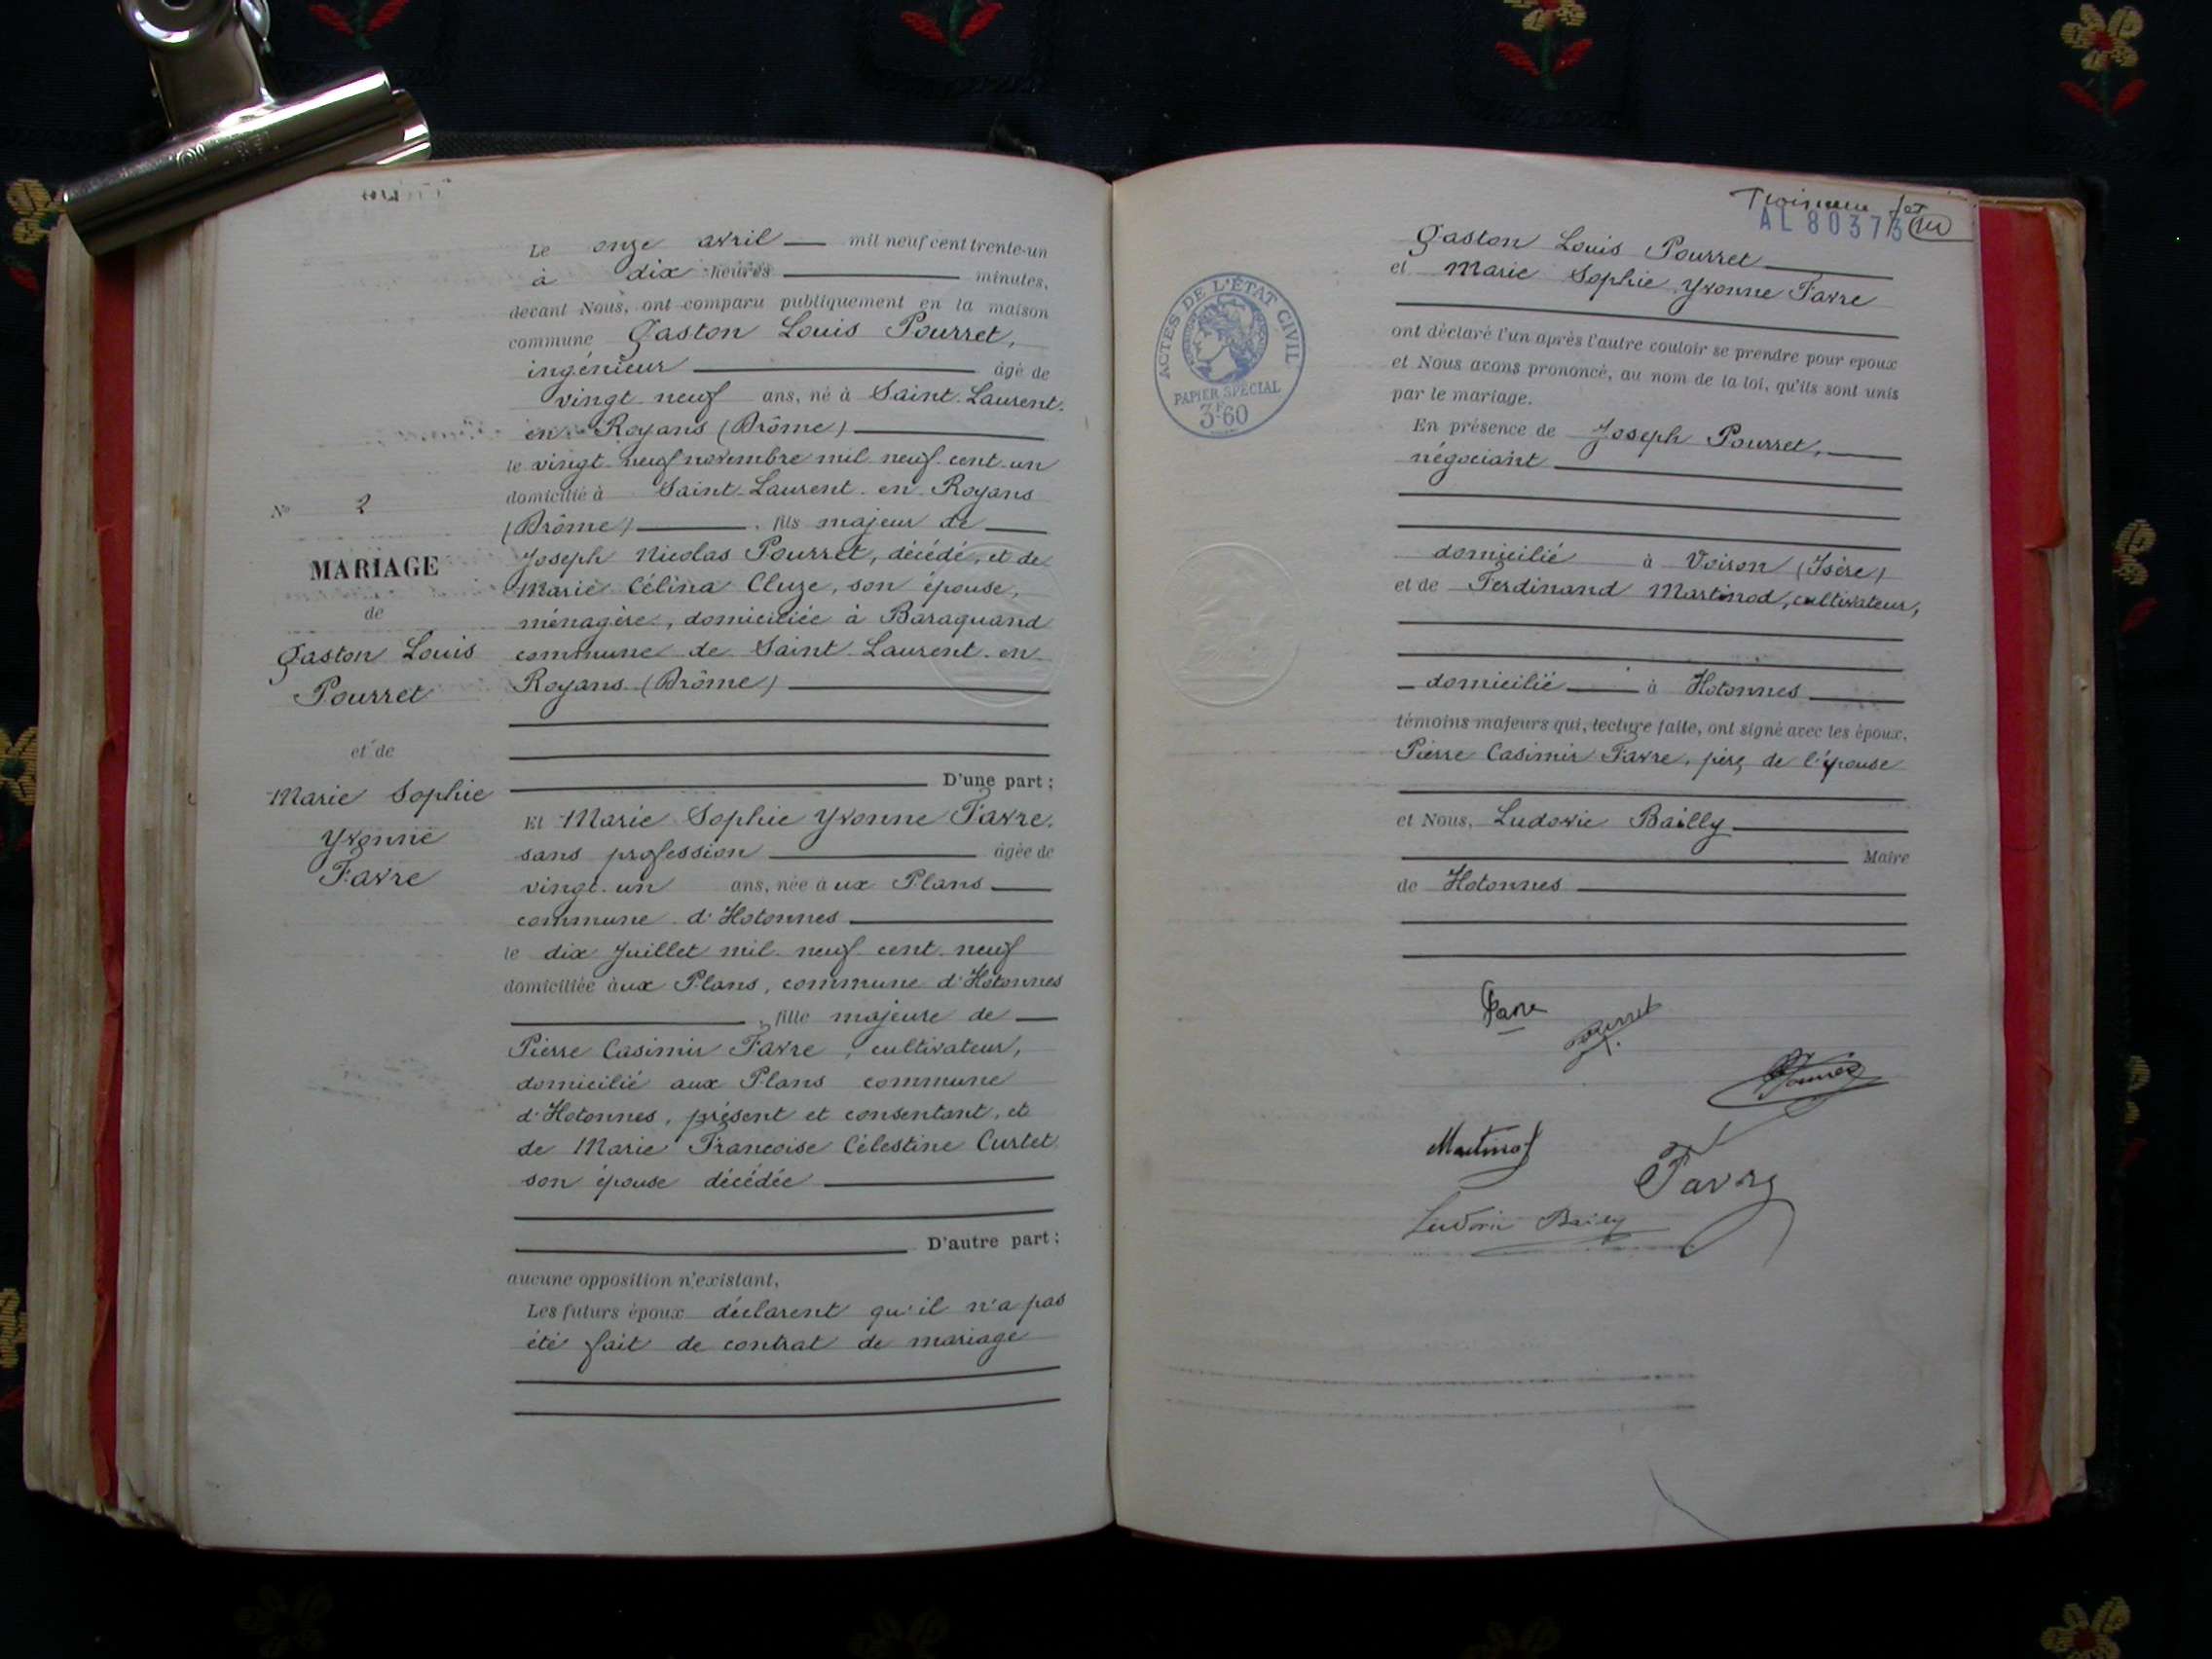 Le onze avril mil neuf cent trente-un
à dix heures minutes,
devant Nous, ont comparu publiquement en la maison
commune Gaston Louis Pourret,
ingénieur âgé de
vingt neuf ans, né à Saint-Laurent-
en-Royans (Drôme)
le vingt-neuf novembre mil-neuf-cent-un
domicilié à Saint-Laurent-en-Royans
(Drôme), fils majeur de
Joseph Nicolas Pourret, décédé, et de
Marie Célina Cluze, son épouse,
ménagère, domiciliée à Baraquand
commune de Saint-Laurent-en-
Royans (Drôme)
D'une part;
Et Marie Sophie Yvonne Favre,
sans profession âgée de
vingt-un ans, née aux Plans
commune d'Hotonnes
le dix Juillet mil-neuf-cent-neuf
domiciliée aux Plans, commune d'Hotonnes
, fille majeure de
Pierre Casimir Favre, cultivateur,
domicilié aux Plans commune
d'Hotonnes, présent et consentant, et
de Marie Francoise Célestine Curtet
son épouse décédée
D'autre part;
aucune opposition n'existant,
Les futurs époux déclarent qu'il n'a pas
été fait de contrat de mariage
N° 2
MARIAGE
de
Gaston Louis
Pourret
et de
Marie Sophie
Yvonne
Favre
AL 80373
ACTES DE L'ÉTAT CIVIL
PAPIER SPÉCIAL
3F60
Gaston Louis Pourret
et Marie Sophie Yvonne Favre
ont déclaré l'un après l'autre couloir se prendre pour epoux
et Nous avons prononcé, au nom de la loi, qu'ils sont unis
par le mariage.
En présence de Joseph Pourret,
négociant
domicilié à Voiron (Isère)
et de Ferdinand Martinod, cultivateur,
domicilié à Hotonnes
témoins majeurs qui, lecture faite, ont signé avec les époux,
Pierre Casimir Favre, père de l'épouse
et Nous, Ludovic Bailly
Maire
de Hotonnes
Favre
Pourret
Martinod
Favre
Ludovic Bailly